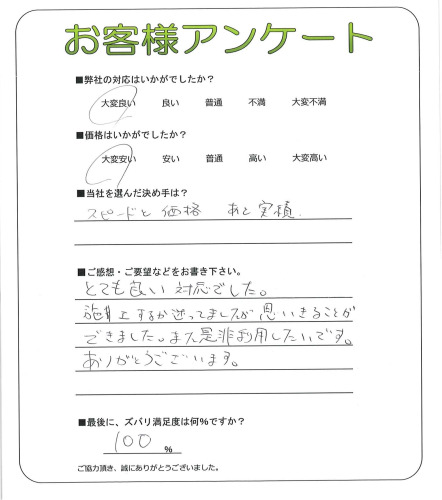 お客様アンケート
■弊社の対応はいかがでしたか？
大変良い 良い 普通 不満 大変不満
■価格はいかがでしたか？
大変安い 安い 普通 高い 大変高い
■当社を選んだ決め手は？
スピードと 価格 あと 実績.
■ご感想・ご要望などをお書き下さい。
とても良い 対応でした。
するか迷ってましたが 思いきることが
できました。また是非利用したいです。
ありがとうございます。
■最後に、ズバリ満足度は何%ですか？
100 %
ご協力頂き、誠にありがとうございました。